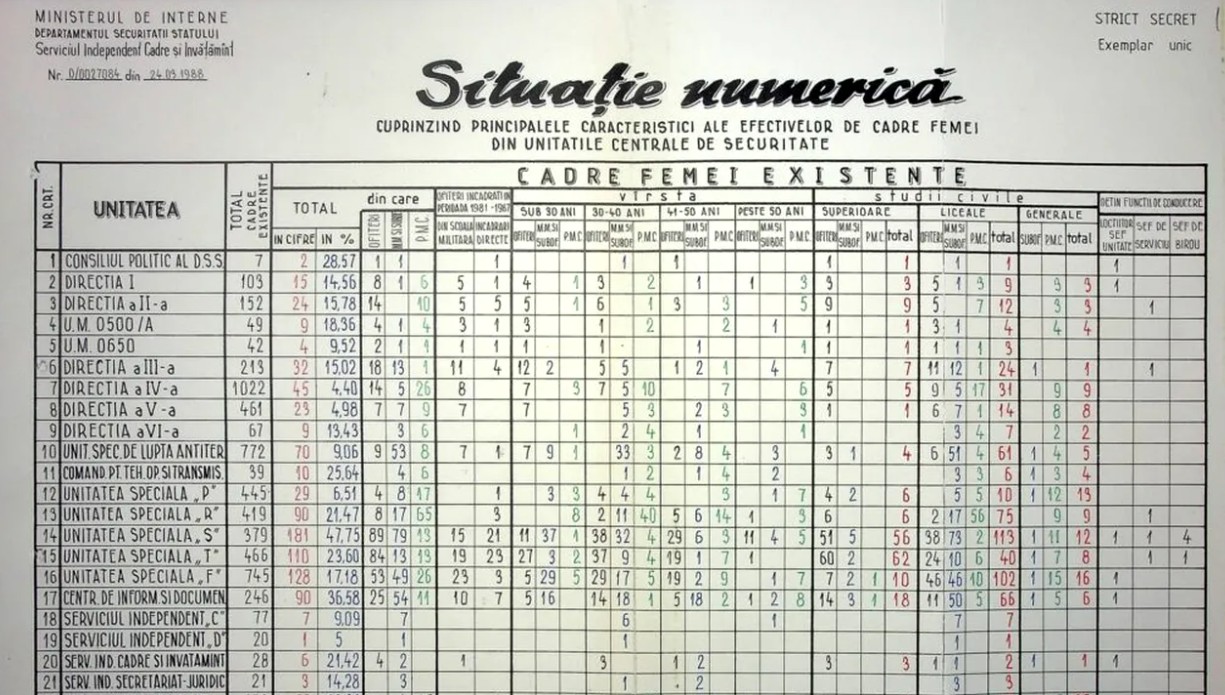 MINISTERUL DE INTERNE
DEPARTAMENTUL SECURITATII STATULUI
Serviciul Independent Cadre și Învățămînt
Nr. D/0027084 din 24.09.1988
STRICT SECRET
Exemplar unic
Situație numerică
CUPRINZIND PRINCIPALELE CARACTERISTICI ALE EFECTIVELOR DE CADRE FEMEI
DIN UNITATILE CENTRALE DE SECURITATE
NR. CRT. UNITATEA TOTAL CADRE EXISTENTE
CADRE FEMEI EXISTENTE
TOTAL din care OFITERI INCADRATI IN PERIOADA 1981-1987 vîrsta studii civile DETIN FUNCTII DE CONDUCERE
SUB 30 ANI 30-40 ANI 41-50 ANI PESTE 50 ANI SUPERIOARE LICEALE GENERALE
IN CIFRE IN % OFITERI MM SI SUBOF P.M.C. DIN SCOALA MILITARA INCADRARI DIRECTE OFITERI M.M.SI SUBOF. P.M.C. OFITERI M.M.SI SUBOF. P.M.C. OFITERI M.M.SI SUBOF. P.M.C. OFITERI M.M.SI SUBOF. P.M.C. OFITERI M.M.SI SUBOF. P.M.C. total OFITERI M.M.SI SUBOF. P.M.C. total SUBOF. P.M.C. total LOCTIITOR SEF UNITATE SEF DE SERVICIU SEF DE BIROU
1 CONSILIUL POLITIC AL D.S.S. 7 2 28,57 1 1 1 1 1 1 1 1 1 1
2 DIRECTIA I 103 15 14,56 8 1 6 5 1 4 1 3 2 1 1 3 3 3 5 1 3 9 3 3 1
3 DIRECTIA a II-a 152 24 15,78 14 10 5 5 5 1 6 1 3 3 5 9 9 5 7 12 3 3 1
4 U.M. 0500/A 49 9 18,36 4 1 4 3 1 3 1 2 2 1 1 1 3 1 4 4 4
5 U.M. 0650 42 4 9,52 2 1 1 1 1 1 1 1 1 1 1 1 1 1 3
6 DIRECTIA a III-a 213 32 15,02 18 13 1 11 4 12 2 5 5 1 2 1 4 7 7 11 12 1 24 1 1 1
7 DIRECTIA a IV-a 1022 45 4,40 14 5 26 8 7 3 7 5 10 7 6 5 5 9 5 17 31 9 9
8 DIRECTIA a V-a 461 23 4,98 7 7 9 7 7 5 3 2 3 3 1 1 6 7 1 14 8 8
9 DIRECTIA a VI-a 67 9 13,43 3 6 1 2 4 1 1 3 4 7 2 2
10 UNIT. SPEC. DE LUPTA ANTITER. 772 70 9,06 9 53 8 7 1 7 9 1 33 3 2 8 4 3 3 1 4 6 51 4 61 1 4 5
11 COMAND. PT. TEH. OP. SI TRANSMIS. 39 10 25,64 4 6 1 2 1 4 2 3 3 6 1 3 4
12 UNITATEA SPECIALA „P” 445 29 6,51 4 8 17 1 3 3 4 4 4 3 1 7 4 2 6 5 5 10 1 12 13
13 UNITATEA SPECIALA „R” 419 90 21,47 8 17 65 3 8 2 11 40 5 6 14 1 3 6 6 2 17 56 75 9 9 1
14 UNITATEA SPECIALA „S” 379 181 47,75 89 79 13 15 21 11 37 1 38 32 4 29 6 3 11 4 5 51 5 56 38 73 2 113 1 11 12 1 1 4
15 UNITATEA SPECIALA „T” 466 110 23,60 84 13 13 19 23 27 3 2 37 9 4 19 1 7 1 60 2 62 24 10 6 40 1 7 8 1 1
16 UNITATEA SPECIALA „F” 745 128 17,18 53 49 26 23 3 5 29 5 29 17 5 19 2 9 1 7 7 2 1 10 46 46 10 102 1 15 16 1
17 CENTR. DE INFORM. SI DOCUMEN. 246 90 36,58 25 54 11 10 7 5 16 14 18 1 5 18 2 1 2 8 14 3 1 18 11 50 5 66 1 5 6 1
18 SERVICIUL INDEPENDENT „C” 77 7 9,09 7 6 1 7 7
19 SERVICIUL INDEPENDENT „D” 20 1 5 1 1 1 1
20 SERV. IND. CADRE SI INVATAMINT 28 6 21,42 4 2 1 3 1 2 3 3 1 1 2 1 1 1
21 SERV. IND. SECRETARIAT-JURIDIC 21 3 14,28 3 1 2 3 3